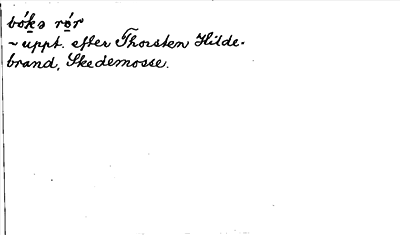 bókə rǿr
~ uppt. efter Thorsten Hilde-
brand, Skedemosse.